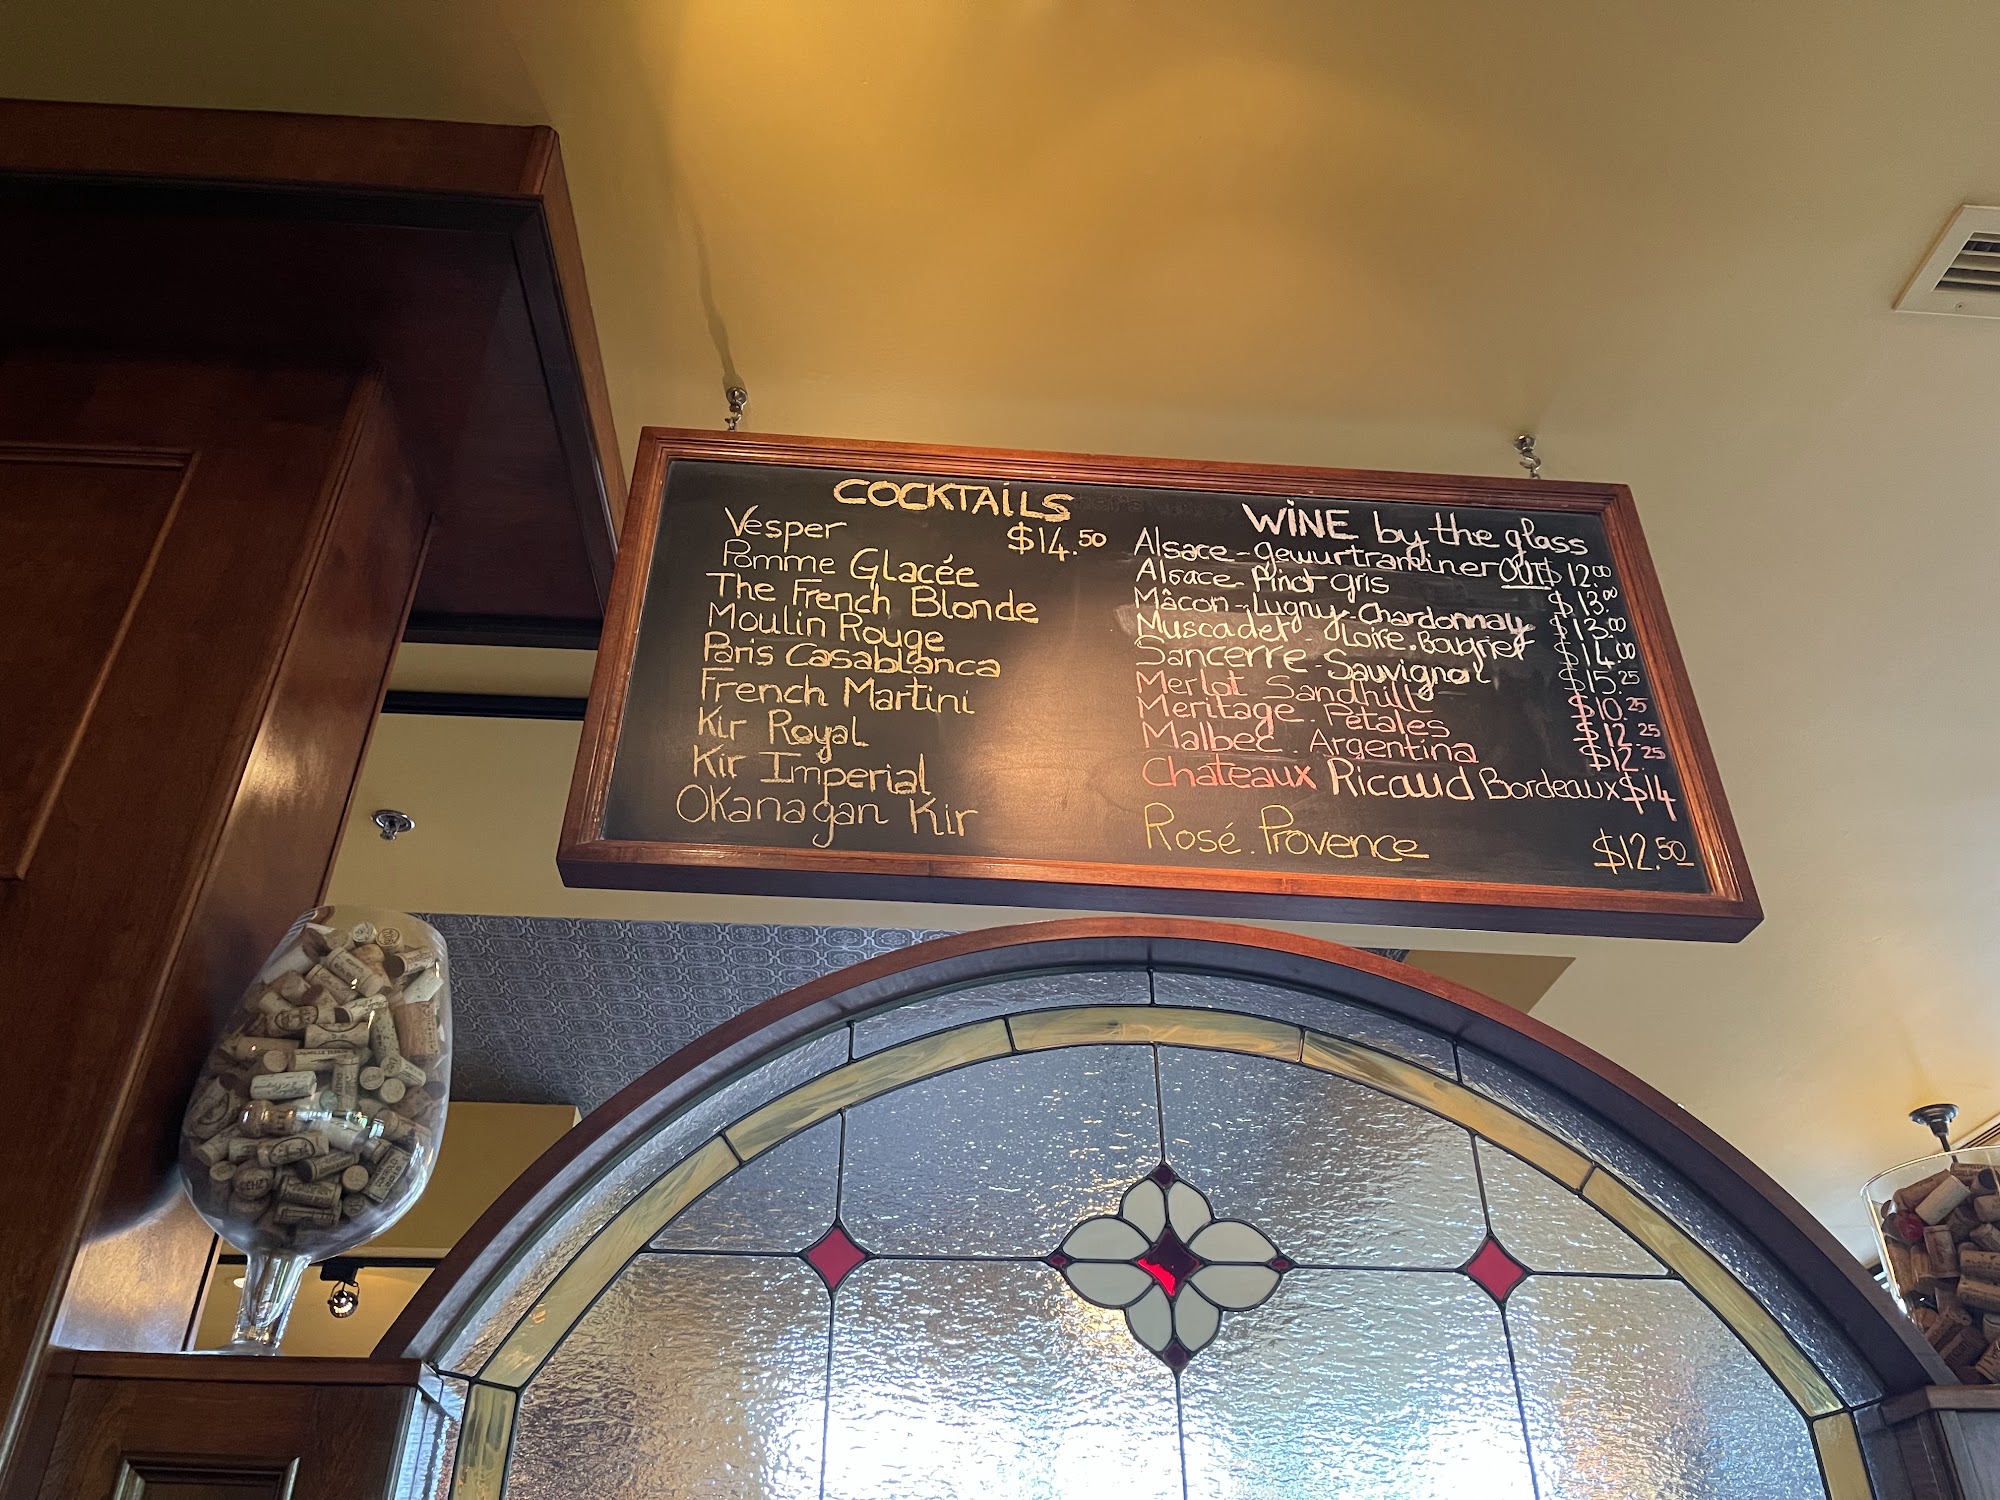 COCKTAILS
Vesper $14.50
Pomme Glacée
The French Blonde
Moulin Rouge
Paris Casablanca
French Martini
Kir Royal
Kir Imperial
Okanagan Kir
WINE by the glass
Alsace - Gewurtraminer OUT $12.00
Alsace - Pinot gris $13.00
Mâcon - Lugny - Chardonnay $13.00
Muscadet - Loire . Bougrier $14.00
Sancerre - Sauvignol $15.25
Merlot Sandhill $10.25
Meritage . Pétales $12.25
Malbec . Argentina $12.25
Chateaux Ricaud Bordeaux $14
Rosé . Provence $12.50